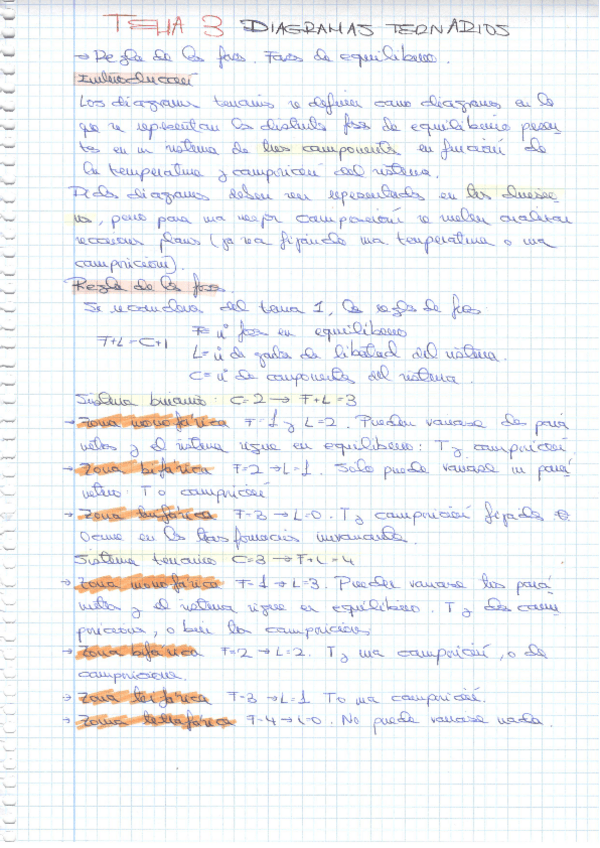 TEMA 3 DIAGRAMAS TERNARIOS
→ Regla de las fases. Fases de equilibrio.
Introducción
Los diagramas ternarios se definen como diagramas en los
que se representan las distintas fases de equilibrio presen-
tes en un sistema de tres componentes en función de
la temperatura y composición del sistema.
Dichos diagramas deben ser representados en tres dimensio
nes, pero para una mejor comprensión se suelen analizar
secciones planas (ya sea fijando una temperatura o una
composición).
Regla de las fases.
Si recordamos del tema 1, la regla de fases
F+L=C+1
F= nº fases en equilibrio
L= nº de grados de libertad del sistema.
C= nº de componentes del sistema.
Sistema binario: C=2 → F+L=3
→ Zona monofásica F=1 y L=2. Pueden variarse dos pará
metros y el sistema sigue en equilibrio: T y composición
→ Zona bifásica F=2 → L=1. Solo puede variarse un pará
metro: T o composición
→ Zona trifásica F=3 → L=0. T y composición fijadas.
Ocurre en las transformaciones invariantes.
Sistema ternario C=3 → F+L=4
→ Zona monofásica F=1 → L=3. Pueden variarse tres pará
metros y el sistema sigue en equilibrio. T y dos com
posiciones, o bien las composiciones
→ Zona bifásica F=2 → L=2. T y una composición, o dos
composiciones.
→ Zona trifásica F=3 → L=1 T o una composición.
→ Zona tetrafásica F=4 → L=0. No puede variarse nada.